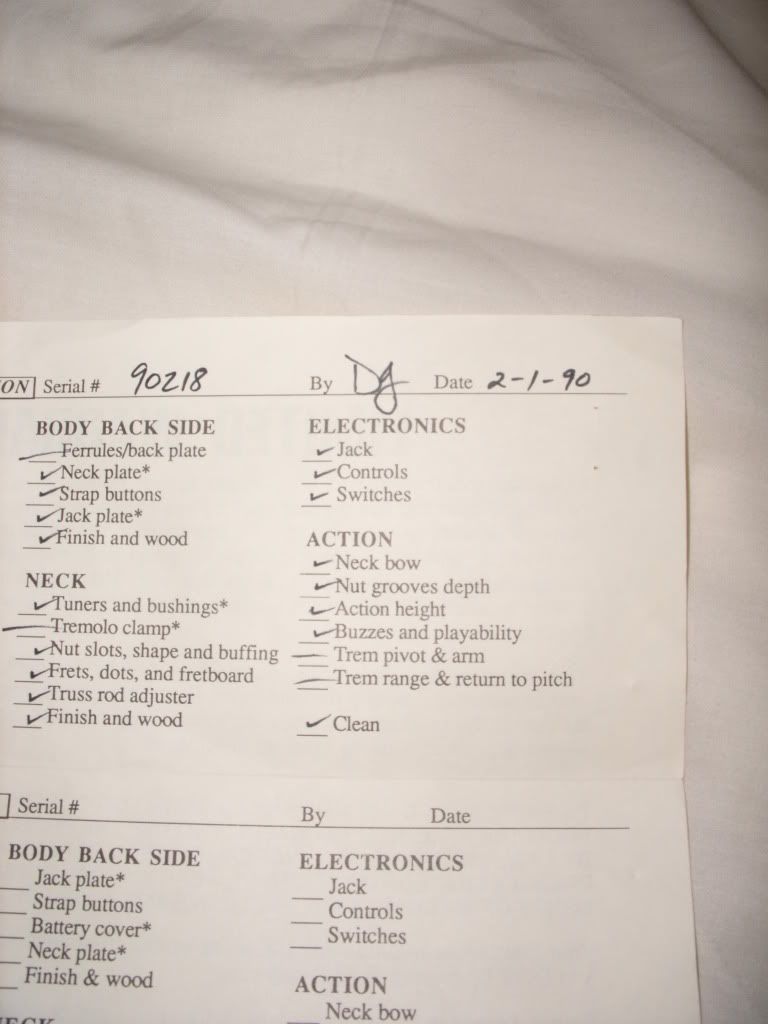 ON Serial # 90218 By Dg Date 2-1-90
BODY BACK SIDE
Ferrules/back plate
Neck plate*
Strap buttons
Jack plate*
Finish and wood
NECK
Tuners and bushings*
Tremolo clamp*
Nut slots, shape and buffing
Frets, dots, and fretboard
Truss rod adjuster
Finish and wood
ELECTRONICS
Jack
Controls
Switches
ACTION
Neck bow
Nut grooves depth
Action height
Buzzes and playability
Trem pivot & arm
Trem range & return to pitch
Clean
Serial # By Date
BODY BACK SIDE
Jack plate*
Strap buttons
Battery cover*
Neck plate*
Finish & wood
ELECTRONICS
Jack
Controls
Switches
ACTION
Neck bow